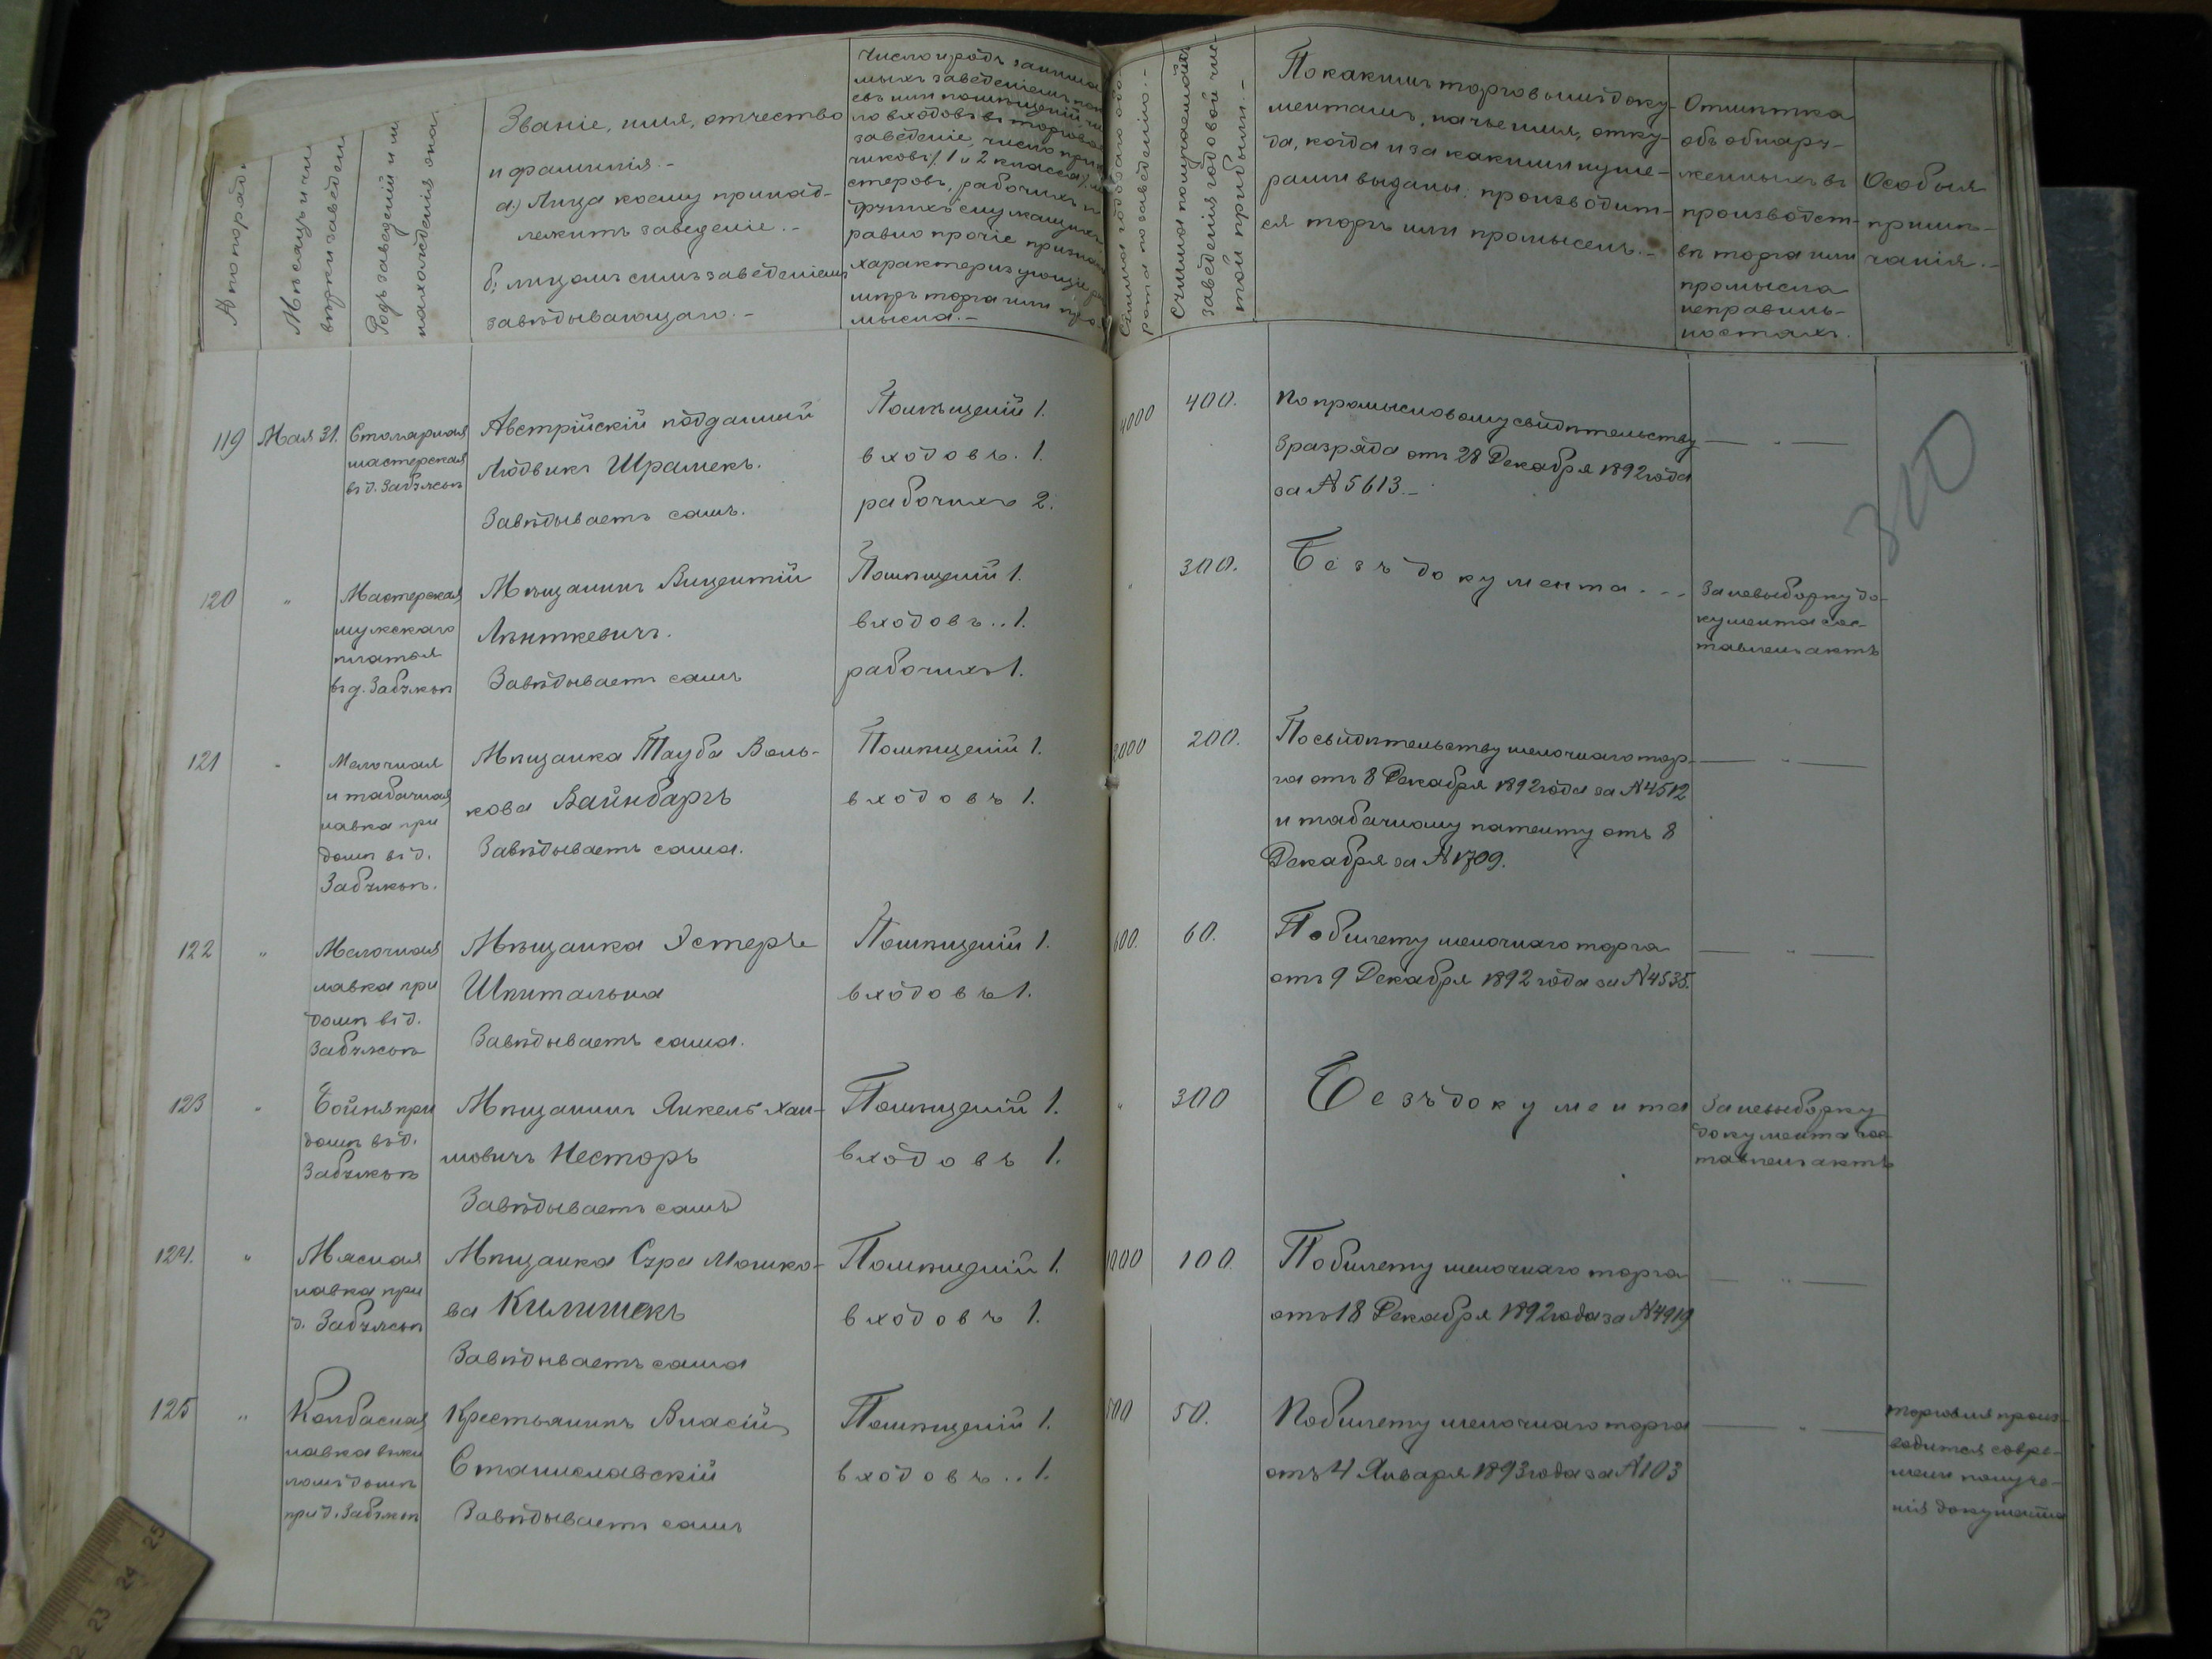 № по порядк
Мѣсяцъ и чи
вѣрки заведен
Родъ заведеній и м
нахожденія онаг
Званіе, имя, отчество
и фамилія.-
а) Лица коему принад-
лежитъ заведеніе.-
б) лицомъ симъ заведеніемъ
завѣдывающаго.-
Число и родъ занима
мыхъ заведеніемъ по
евъ или помѣщеній чи
ло входовъ въ торгово
заведеніе, число при
чиковъ (1 и 2 класса), ма
стеровъ, рабочихъ и
другихъ служащихъ
равно прочіе призна
характеризующіе ра
мѣръ торга или про
мысла.-
Сумма годоваго обо-
рота по заведенію.-
Сумма получаемой отъ
заведенія годовой чис-
той прибыли.-
По какимъ торговымъ доку-
ментамъ, на чье имя, отку-
да, когда и за какими нуме-
рами выданы: производит-
ся торгъ или промыселъ.-
Отмѣтка
объ обнару-
женныхъ въ
производст-
вѣ торга или
промысла
неправиль-
ностяхъ.
Особыя
примѣ-
чанія.-
300
119 Мая 31. Столярная
мастерская
въ д. Забѣлкѣ
Австрійскій подданный
Людвикъ Шрамекъ.
Завѣдываетъ самъ.
Помѣщеній 1.
входовъ. 1.
рабочихъ 2.
4000 400.
По промысловому свидѣтельству
3 разряда отъ 28 Декабря 1892 года
за № 5613.-
— „ —
120 „ Мастерская
мужскаго
платья
въ д.
Мѣщанинъ Вицентій
Завѣдываетъ самъ
Помѣщеній 1.
входовъ..1.
рабочихъ 1.
„ 300.
Безъ документа...
За невыборку до-
кумента сос-
тавленъ актъ
121 „ Мелочная
и табачная
лавка при
домѣ въ д.
Мѣщанка Тауба Воль-
кова Вайнбаргъ
Завѣдываетъ сама.
Помѣщеній 1.
входовъ 1.
2000 200.
По свидѣтельству мелочнаго тор-
га отъ 8 Декабря 1892 года за № 4512
и табачному патенту отъ 8
Декабря за № 1709.
— „ —
122 „ Мелочная
лавка при
домѣ въ д.
Мѣщанка Эстеръ
Шпитальна
Завѣдываетъ сама.
Помѣщеній 1.
входовъ 1.
600. 60.
По билету мелочнаго торга
отъ 9 Декабря 1892 года за № 4535.
— „ —
123 „ Бойня при
домѣ въ д.
Мѣщанинъ Янкель Хаи-
мовичъ Несторъ
Завѣдываетъ самъ
Помѣщеній 1.
входовъ 1.
„ 300
Безъ документа
За невыборку
документа сос-
тавленъ актъ
124. „ Мясная
лавка при
д.
Мѣщанка Сура Мошко-
ва Килимекъ
Завѣдываетъ сама
Помѣщеній 1.
входовъ 1.
1000 100.
По билету мелочнаго торга
отъ 18 Декабря 1892 года за № 4919
— „ —
125 „ Колбасная
лавка въ жи
ломъ домѣ
при д.
Крестьянинъ Власій
Станиславскій
Завѣдываетъ самъ
Помѣщеній 1.
входовъ..1.
500 50.
По билету мелочнаго торга
отъ 4 Января 1893 года за № 103
— „ —
торговля произ-
водится совре-
мени получе-
нія документа
25
24
23